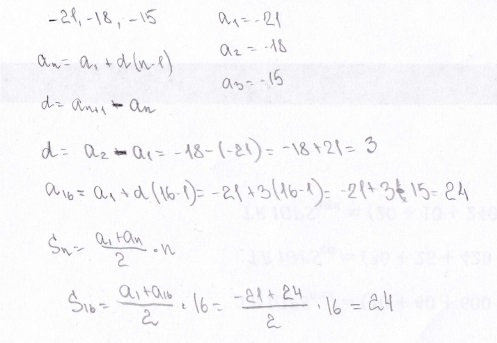 -21, -18, -15 a₁ = -21
a₂ = -18
aₙ = a₁ + d(n-1) a₃ = -15
d = aₙ₊₁ - aₙ
d = a₂ - a₁ = -18-(-21) = -18+21 = 3
a₁₆ = a₁ + d(16-1) = -21+3(16-1) = -21+3·15 = 24
Sₙ = (a₁+aₙ)/2 · n
S₁₆ = (a₁+a₁₆)/2 · 16 = (-21+24)/2 · 16 = 24